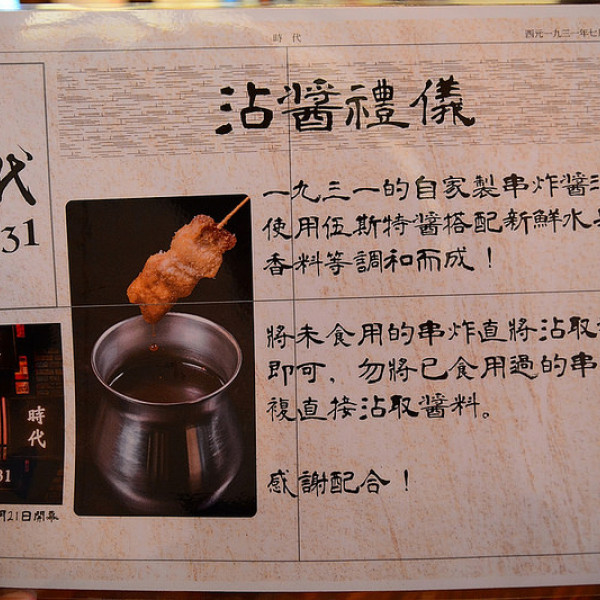 時代
西元一九三一年七
沾醬禮儀
代
31
一九三一的自家製串炸醬
使用伍斯特醬搭配新鮮水
香料等調和而成！
將未食用的串炸直將沾取
即可，勿將已食用過的串
複直接沾取醬料。
感謝配合！
時代
31
月21日開幕